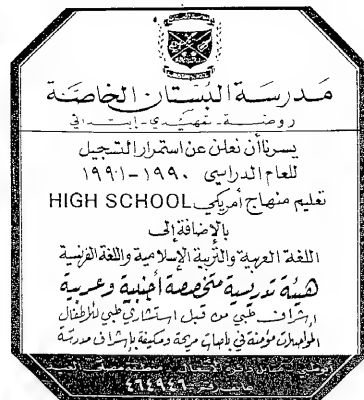 مدرسة البستان الخاصة
روضة - تمهيدي - ابتدائي
يسرنا أن نعلن عن استمرار التسجيل
للعام الدراسي ١٩٩٠ - ١٩٩١
تعليم منهاج أمريكي HIGH SCHOOL
بالإضافة إلى
اللغة العربية والتربية الإسلامية واللغة الفرنسية
هيئة تدريسية متخصصة أجنبية وعربية
إشراف طبي من قبل استشاري طبي للأطفال
المواصلات مؤمنة في باصات مريحة ومكيفة بإشراف مدرسة
٤٦٤٩٤٦